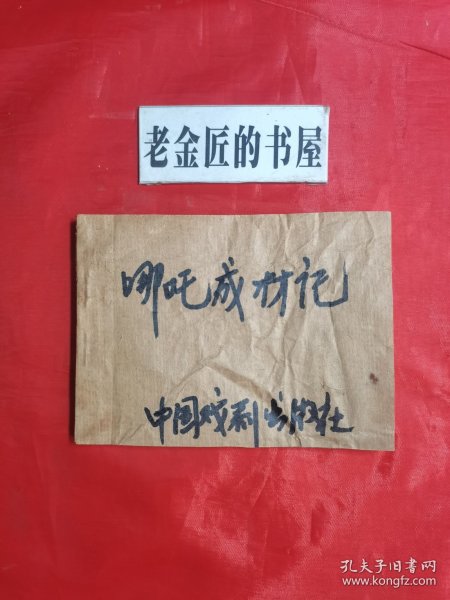 老金匠的书屋
哪吒成材记
中国戏剧出版社
孔夫子旧书网
www.kongfz.com